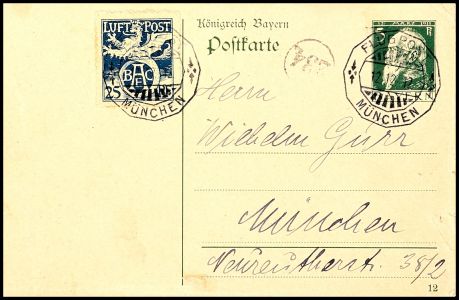 LUFT POST
BAC
25
MÜNCHEN
Königreich Bayern
Postkarte
12. MÄRZ 1911
5
MÜNCHEN
Herrn
Wilhelm Gurr
München
Neureutherstr. 38/2
12